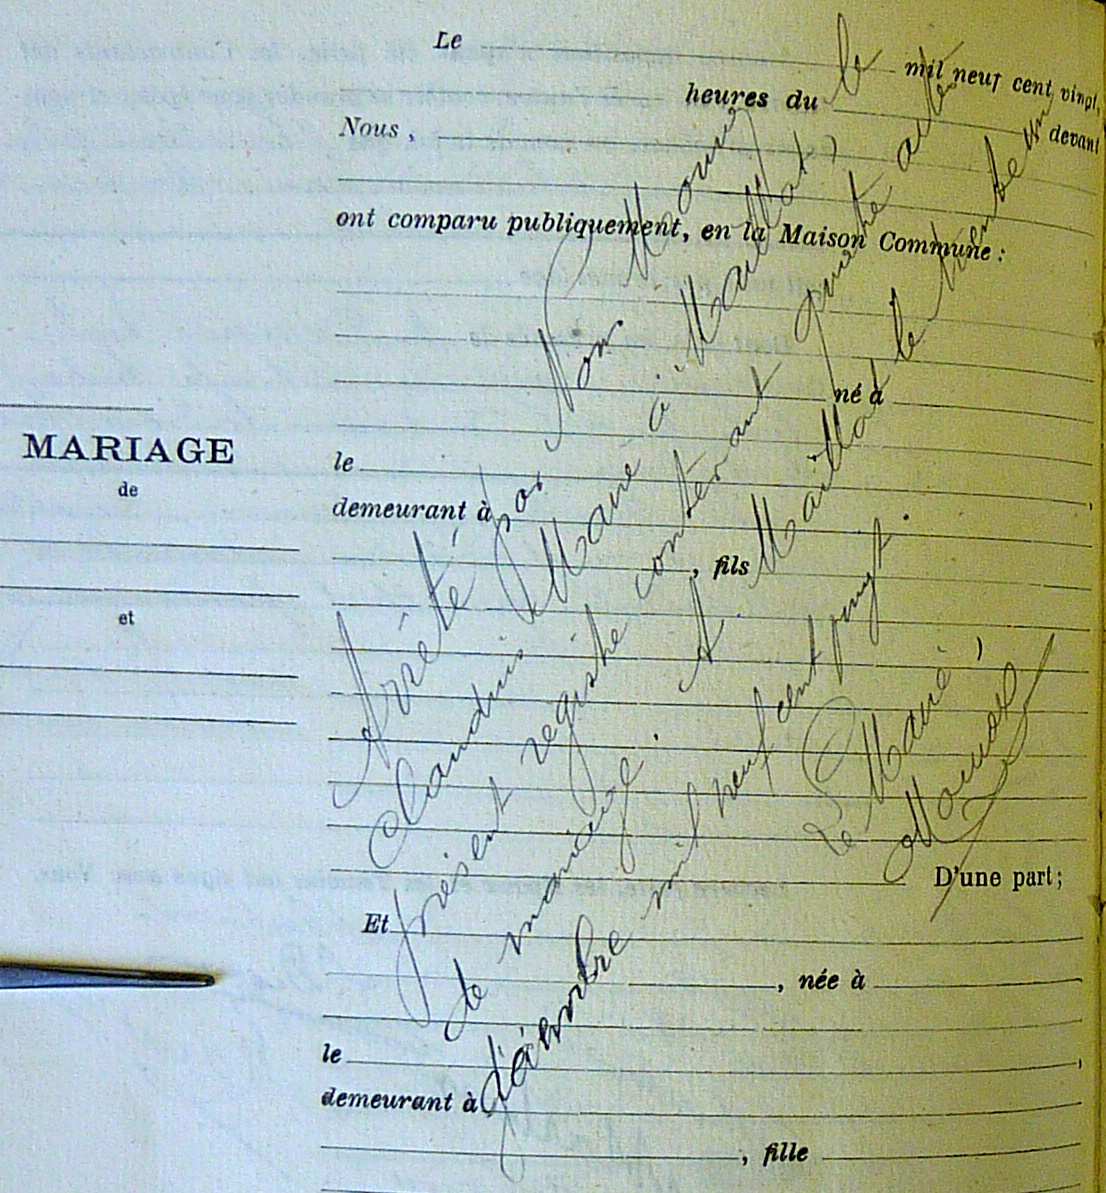 Le mil neuf cent vingt,
heures du devant
Nous,
ont comparu publiquement, en la Maison Commune :
né à
le
demeurant à
, fils
D'une part;
Et
, née à
le
demeurant à
, fille
MARIAGE
de
et
Arrêté par Nous
Claudius Maire à Maillat, le
présent registre contenant quatre actes
de mariage. A Maillat le trente un
décembre mil neuf cent vingt.
Le Maire,